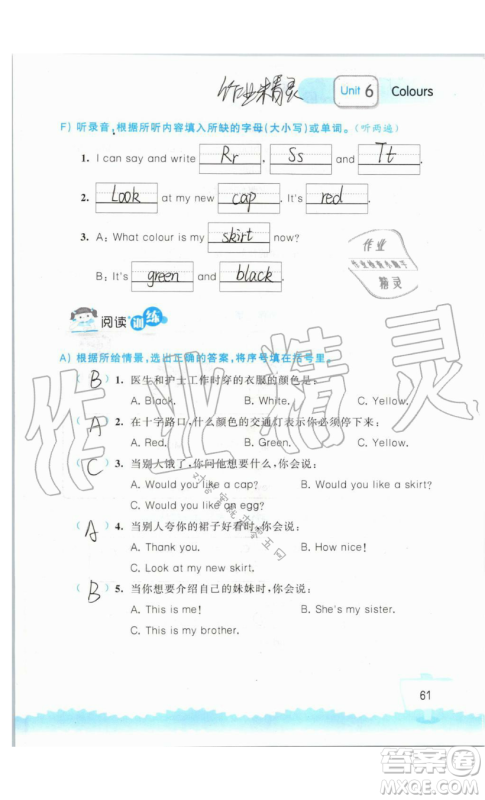 作业精灵 Unit 6 Colours
F) 听录音,根据所听内容填入所缺的字母(大小写)或单词。(听两遍)
1. I can say and write Rr , Ss and Tt .
2. Look at my new cap . It's red .
3. A: What colour is my skirt now?
B: It's green and black .
作业
精灵
阅读训练
A) 根据所给情景,选出正确的答案,将序号填在括号里。
( B ) 1. 医生和护士工作时穿的衣服的颜色是:
A. Black. B. White. C. Yellow.
( A ) 2. 在十字路口,什么颜色的交通灯表示你必须停下来:
A. Red. B. Green. C. Yellow.
( C ) 3. 当别人饿了,你问他想要什么,你会说:
A. Would you like a cap? B. Would you like a skirt?
C. Would you like an egg?
( A ) 4. 当别人夸你的裙子好看时,你会说:
A. Thank you. B. How nice!
C. Look at my new skirt.
( B ) 5. 当你想要介绍自己的妹妹时,你会说:
A. This is me! B. She's my sister.
C. This is my brother.
作业精灵
61
答案圈
MXQE.COM